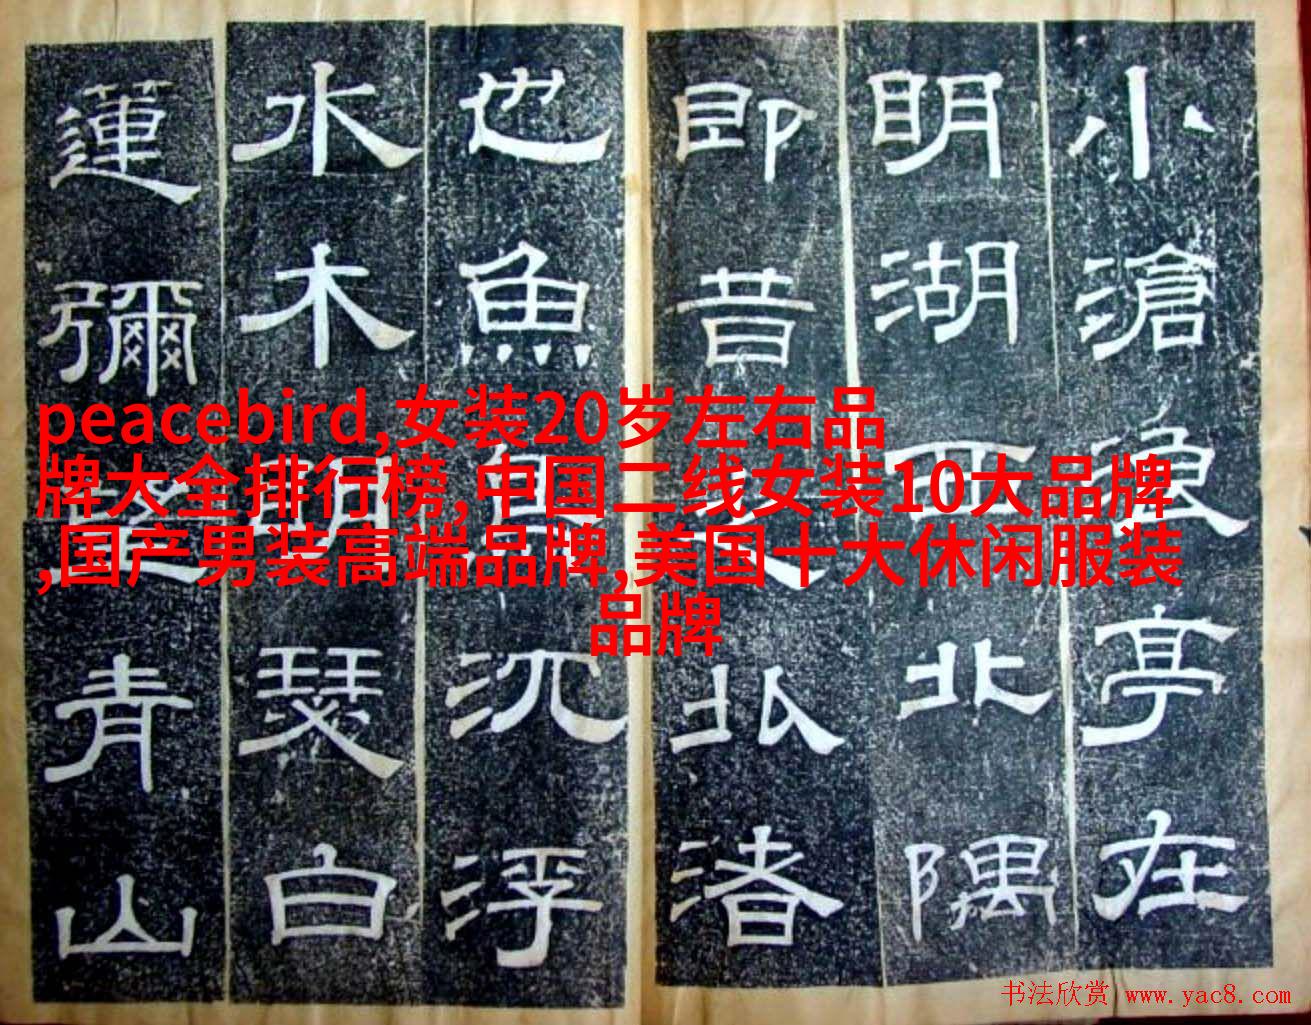 小滄浪亭在
明湖西北隅
即昔北渚
也魚鳥沉浮
水木明瑟白
蓮彌青山
peacebird,女装20岁左右品
牌大全排行榜,中国二线女装10大品牌
,国产男装高端品牌,美国十大休闲服装
品牌
书法欣赏 www.yac8.com